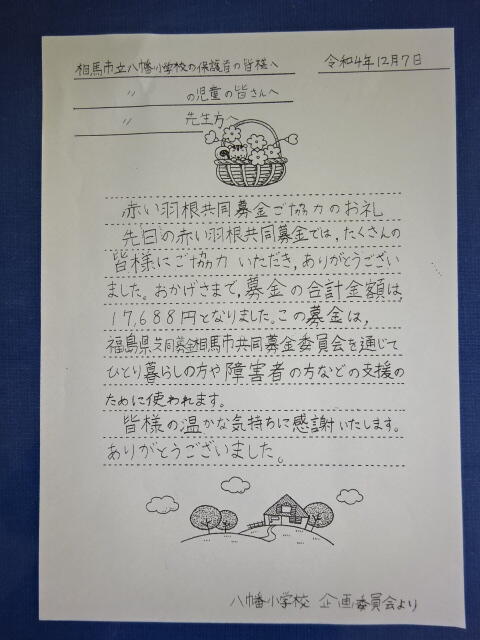 相馬市立八幡小学校の保護者の皆様へ
令和4年12月7日
〃 の児童の皆さんへ
〃 先生方へ
赤い羽根共同募金ご協力のお礼
先日の赤い羽根共同募金では、たくさんの
皆様にご協力いただき、ありがとうござい
ました。おかげさまで、募金の合計金額は、
17,688円となりました。この募金は、
福島県共同募金相馬市共同募金委員会を通じて
ひとり暮らしの方や障害者の方などの支援の
ために使われます。
皆様の温かな気持ちに感謝いたします。
ありがとうございました。
八幡小学校 企画委員会より